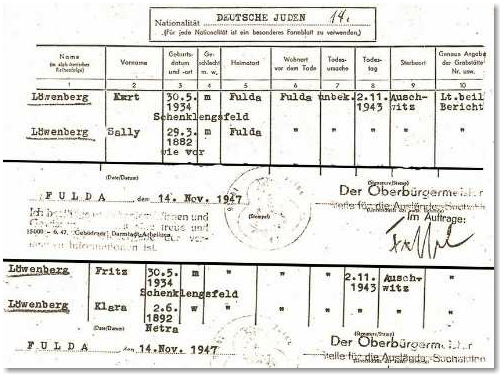 Nationalität DEUTSCHE JUDEN 14.
(Für jede Nationalität ist ein besonderes Formblatt zu verwenden.)
Name Vorname Geburts- Ge- Heimatort Wohnort Todes- Todes- Sterbeort Genaue Angabe
datum schlecht vor dem Tode ursache tag der Grabstätte
und -ort m. w. Nr. usw.
1 2 3 4 5 6 7 8 9 10
Löwenberg Kurt 30.5. m Fulda Fulda unbek. 2.11. Ausch- Lt.beil
1934 1943 witz Bericht
Schenklengsfeld
Löwenberg Sally 29.3. m Fulda " " " " "
1882
wie vor
(Date/Datum) (Signature/Stempel)
FULDA den 14. Nov. 1947 Der Oberbürgermeister
(Stempel) Stelle für die Ausländer-Suchaktion
Im Auftrage:
Löwenberg Fritz 30.5. m " " " 2.11. Ausch- "
1934 1943 witz
Schenklengsfeld
Löwenberg Klara 2.6. w " " " " " "
1892
Netra
(Date/Datum) (Signature/Stempel)
FULDA den 14.Nov.1947 Der Oberbürgermeister
Stelle für die Ausländer-Suchaktion